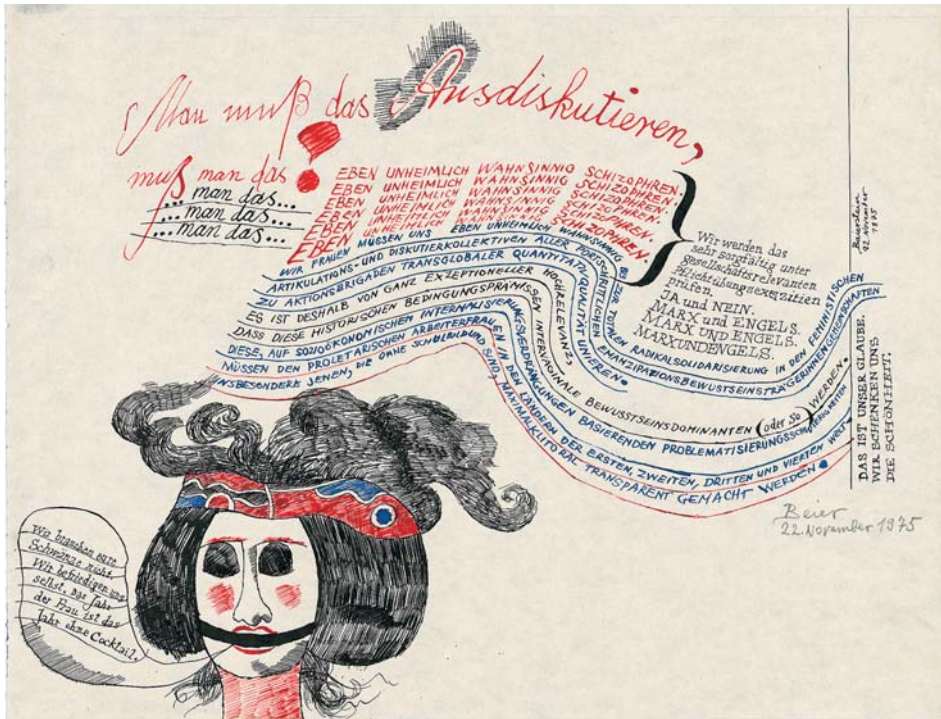 Man muß das Ausdiskutieren,
muß man das?
... man das...
... man das...
... man das...
EBEN UNHEIMLICH WAHNSINNIG SCHIZOPHREN.
EBEN UNHEIMLICH WAHNSINNIG SCHIZOPHREN.
EBEN UNHEIMLICH WAHNSINNIG SCHIZOPHREN.
EBEN UNHEIMLICH WAHNSINNIG SCHIZOPHREN.
EBEN UNHEIMLICH WAHNSINNIG SCHIZOPHREN.
EBEN UNHEIMLICH WAHNSINNIG SCHIZOPHREN.
WIR FRAUEN MÜSSEN UNS EBEN UNHEIMLICH WAHNSINNIG ZUR TOTALEN RADIKALSOLIDARISIERUNG IN DEN FEMINISTISCHEN
ARTIKULATIONS- UND DISKUTIERKOLLEKTIVEN ALLER FORTSCHRITTLICHEN EMANZIPATIONSBEWUSTSEINSTRÄGERINNENGEMEINSCHAFTEN
ZU AKTIONSBRIGADEN TRANSGLOBALER QUANTITATIVQUALITÄT UNIEREN.
ES IST DESHALB VON GANZ EXZEPTIONELLER HOCHRELEVANZ,
DASS DIESE HISTORISCHEN BEDINGUNGSPRÄMISSEN INTERVAGINALE BEWUSSTSEINSDOMINANTEN (oder so) WERDEN.
DIESE, AUF SOZIOÖKONOMISCHEM INTERNALISIERUNGSVERDRÄNGUNGEN BASIERENDEN PROBLEMATISIERUNGSSCHWIERIGKEITEN
MÜSSEN DEN PROLETARISCHEN ARBEITERFRAUEN IN DEN LÄNDERN DER ERSTEN, ZWEITEN, DRITTEN UND VIERTEN WELT,
INSBESONDERE JENEN, DIE OHNE SCHULBILDUNG SIND, MAXIMALKLITORAL TRANSPARENT GEMACHT WERDEN.
Wir werden das
sehr sorgfältig unter
gesellschaftsrelevanten
Pflichtübungsexerzitien
prüfen.
JA und NEIN.
MARX und ENGELS.
MARX UND ENGELS.
MARXUNDENGELS.
12. November
1975
DAS IST UNSER GLAUBE.
WIR SCHENKEN UNS
DIE SCHÖNHEIT.
Beier
22. November 1975
Wir brauchen eure
Schwänze nicht.
Wir befriedigen uns
selbst. Das Jahr
der Frau ist das
Jahr ohne Cocktail.